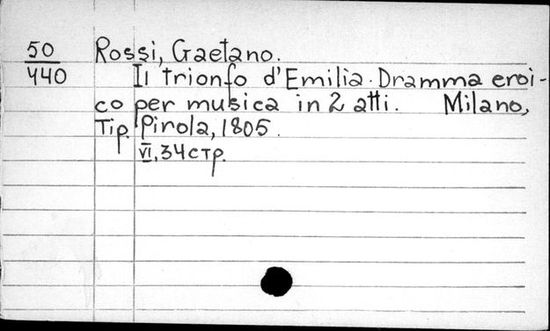 50 Rossi, Gaetano.
440 Il trionfo d'Emilia. Dramma eroi-
co per musica in 2 atti. Milano,
Tip. Pirola, 1805.
VI, 34 стр.